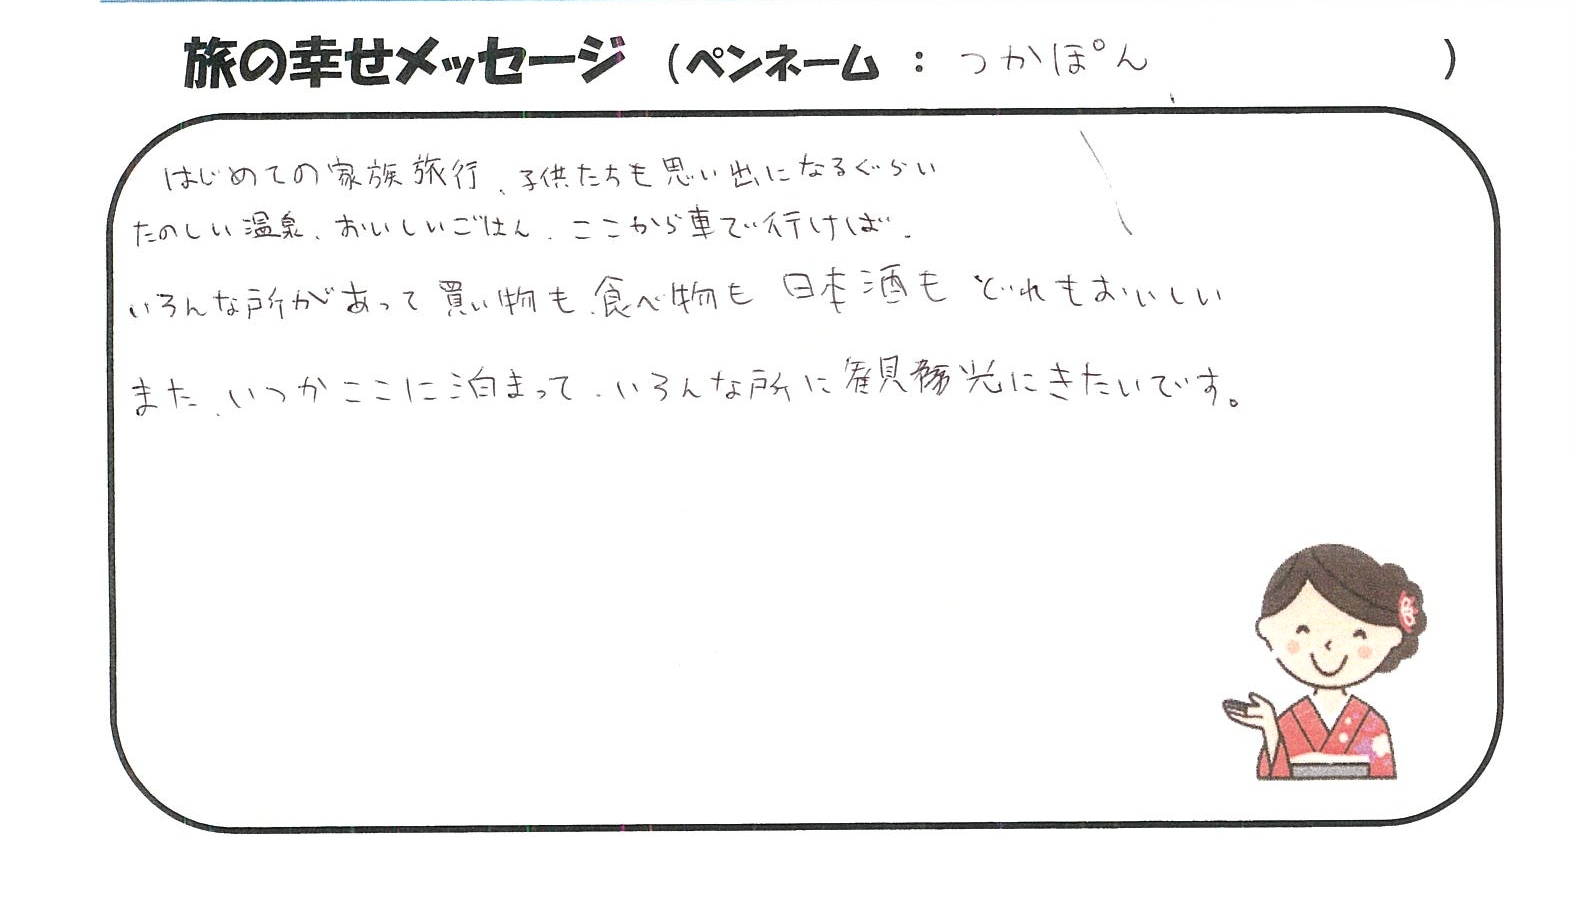 旅の幸せメッセージ（ペンネーム：つかぽん）
はじめての家族旅行、子供たちも思い出になるぐらい
たのしい温泉、おいしいごはん、ここから車で行けば、
いろんな所があって買い物も、食べ物も 日本酒も どれもおいしい
また、いつかここに泊まって、いろんな所に観光にきたいです。